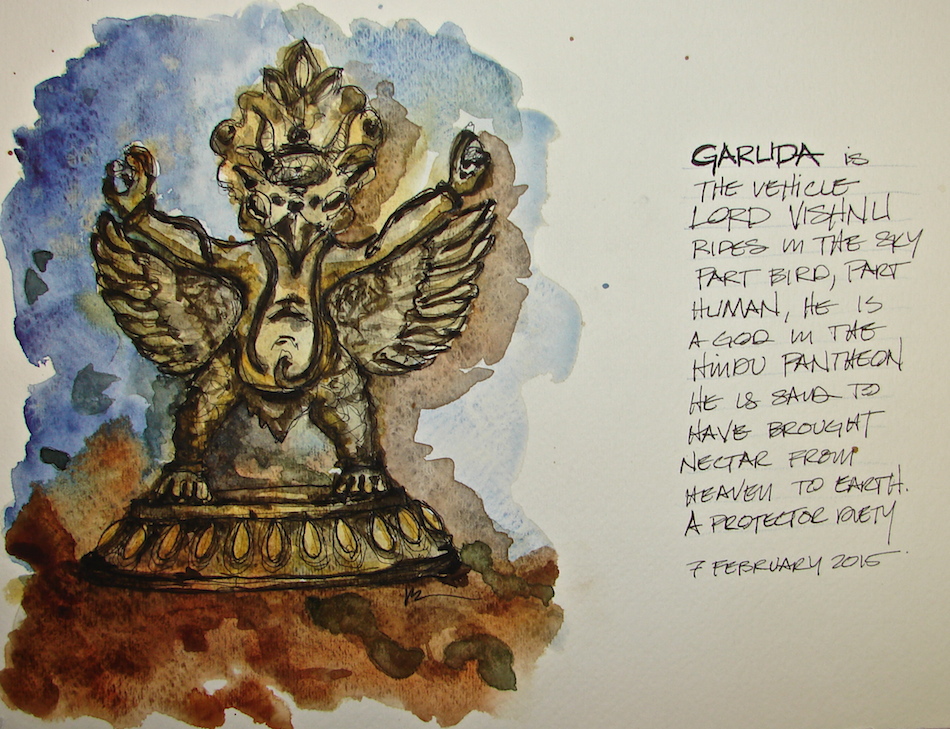 GARUDA is
THE VEHICLE
LORD VISHNU
RIDES IN THE SKY
PART BIRD, PART
HUMAN, HE IS
A GOD IN THE
HINDU PANTHEON
HE IS SAID TO
HAVE BROUGHT
NECTAR FROM
HEAVEN TO EARTH.
A PROTECTOR
7 FEBRUARY 2015